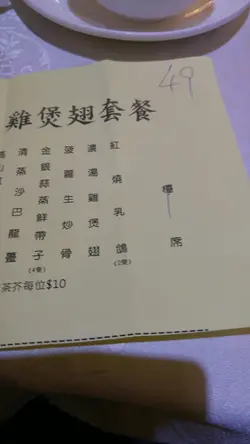 49
雞煲翅套餐
席
紅燒乳鴿
濃湯雞煲翅
菠蘿生炒骨
金銀蒜蒸鮮帶子
清蒸沙巴龍躉
茶芥每位$10